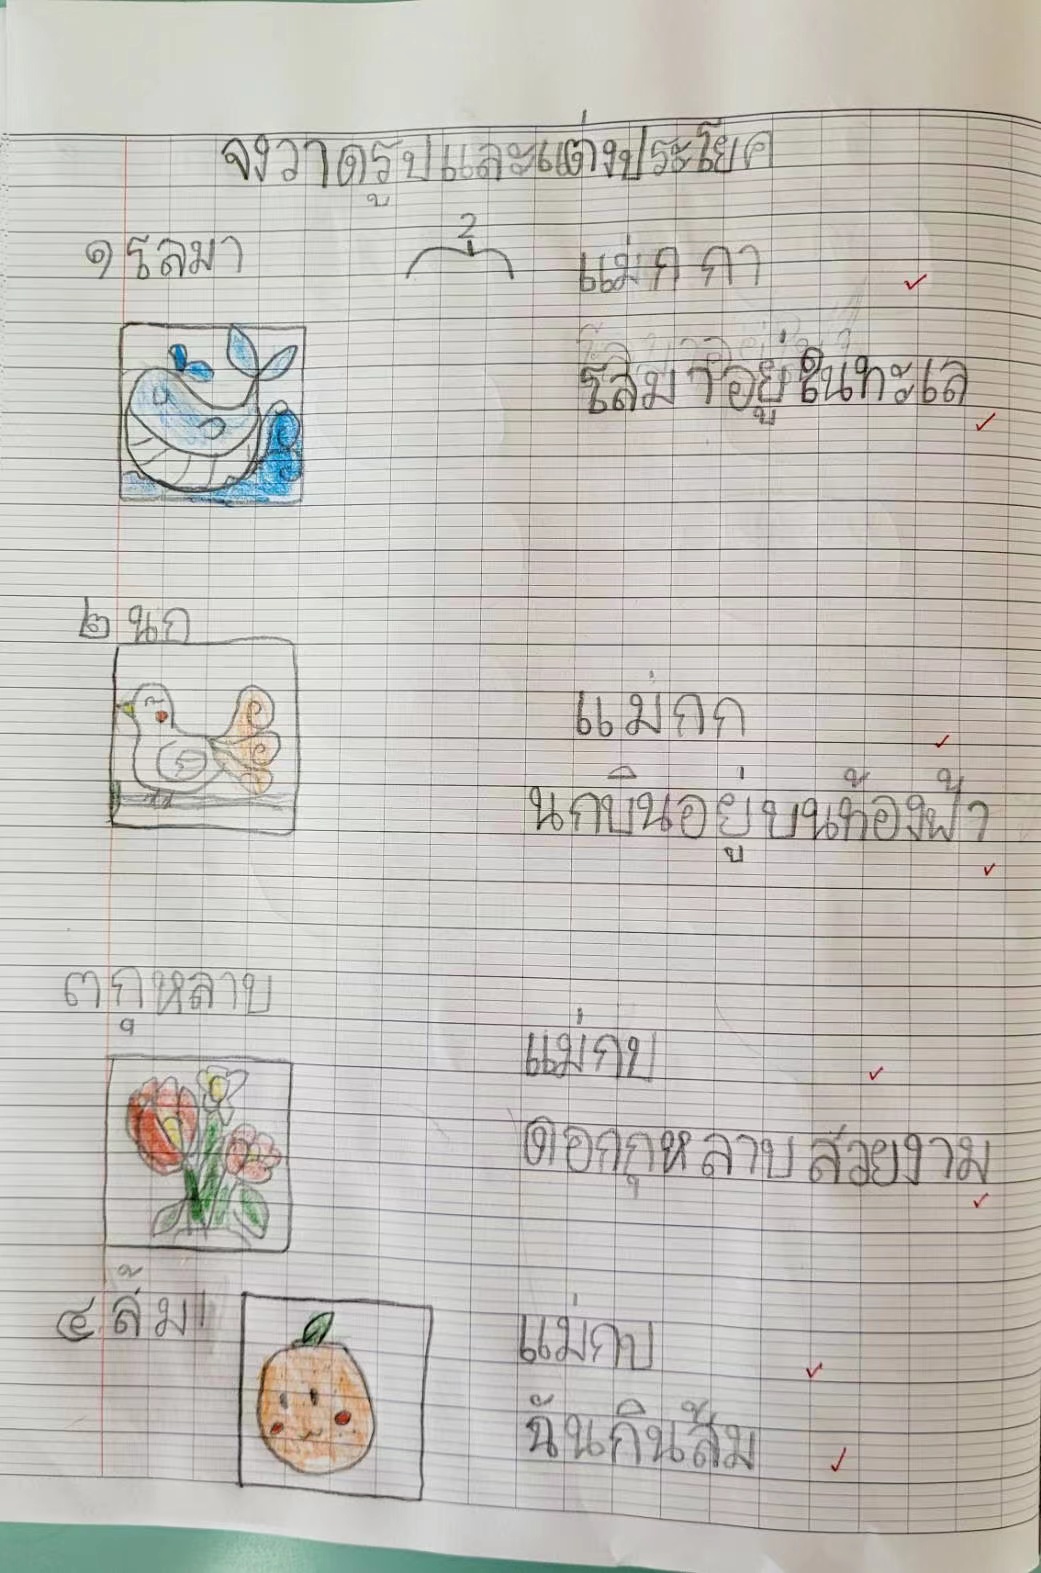 จงวาดรูปและแต่งประโยค
๑ โลมา
2
แม่ก กา
โลมาอยู่ในทะเล
๒ นก
แม่กก
นกบินอยู่บนท้องฟ้า
๓ กุหลาบ
แม่กบ
ดอกกุหลาบสวยงาม
๔ ส้ม
แม่กบ
ฉันกินส้ม